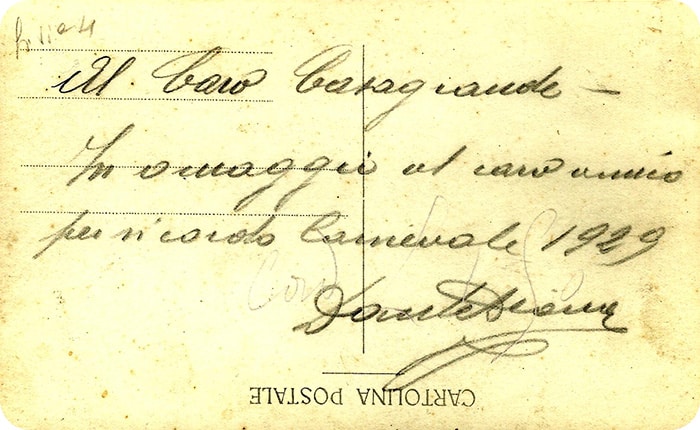 Al Caro Casagrande -
In omaggio al caro amico
per ricordo Carnevale 1929
Dante
CARTOLINA POSTALE